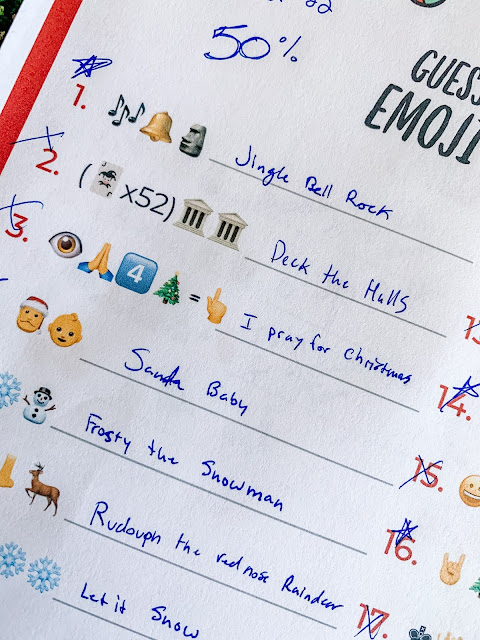 50%
GUESS
EMOJI
1. Jingle Bell Rock
2. (x52) Deck the Halls
3. 4 = I pray for Christmas
14.
Santa Baby
15.
Frosty the Snowman
16.
Rudouph the red nose Raindeer
17.
Let it Snow